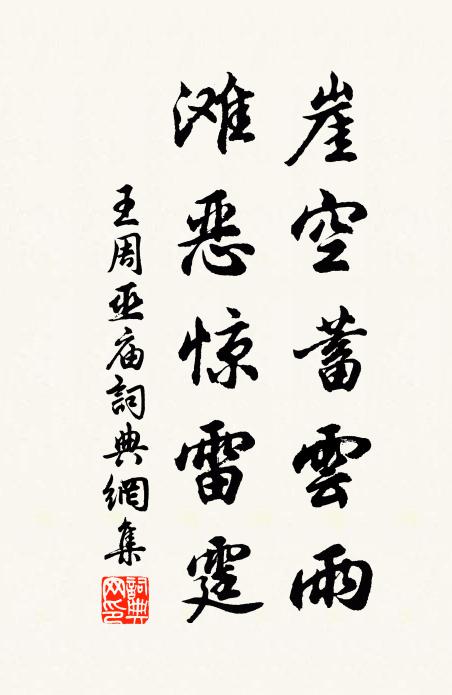 崖空蓄雲雨
滩恶惊雷霆
王周巫庙詞典網集
詞典网印